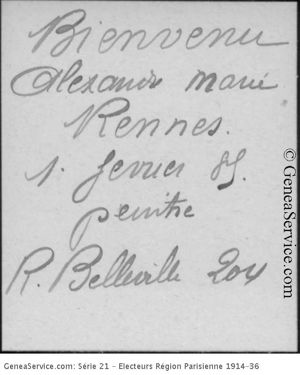 Bienvenu
Alexandre Marie
Rennes.
1. fevrier 85.
peintre
R. Belleville 204
© GeneaService.com
GeneaService.com: Série 21 - Electeurs Région Parisienne 1914-36